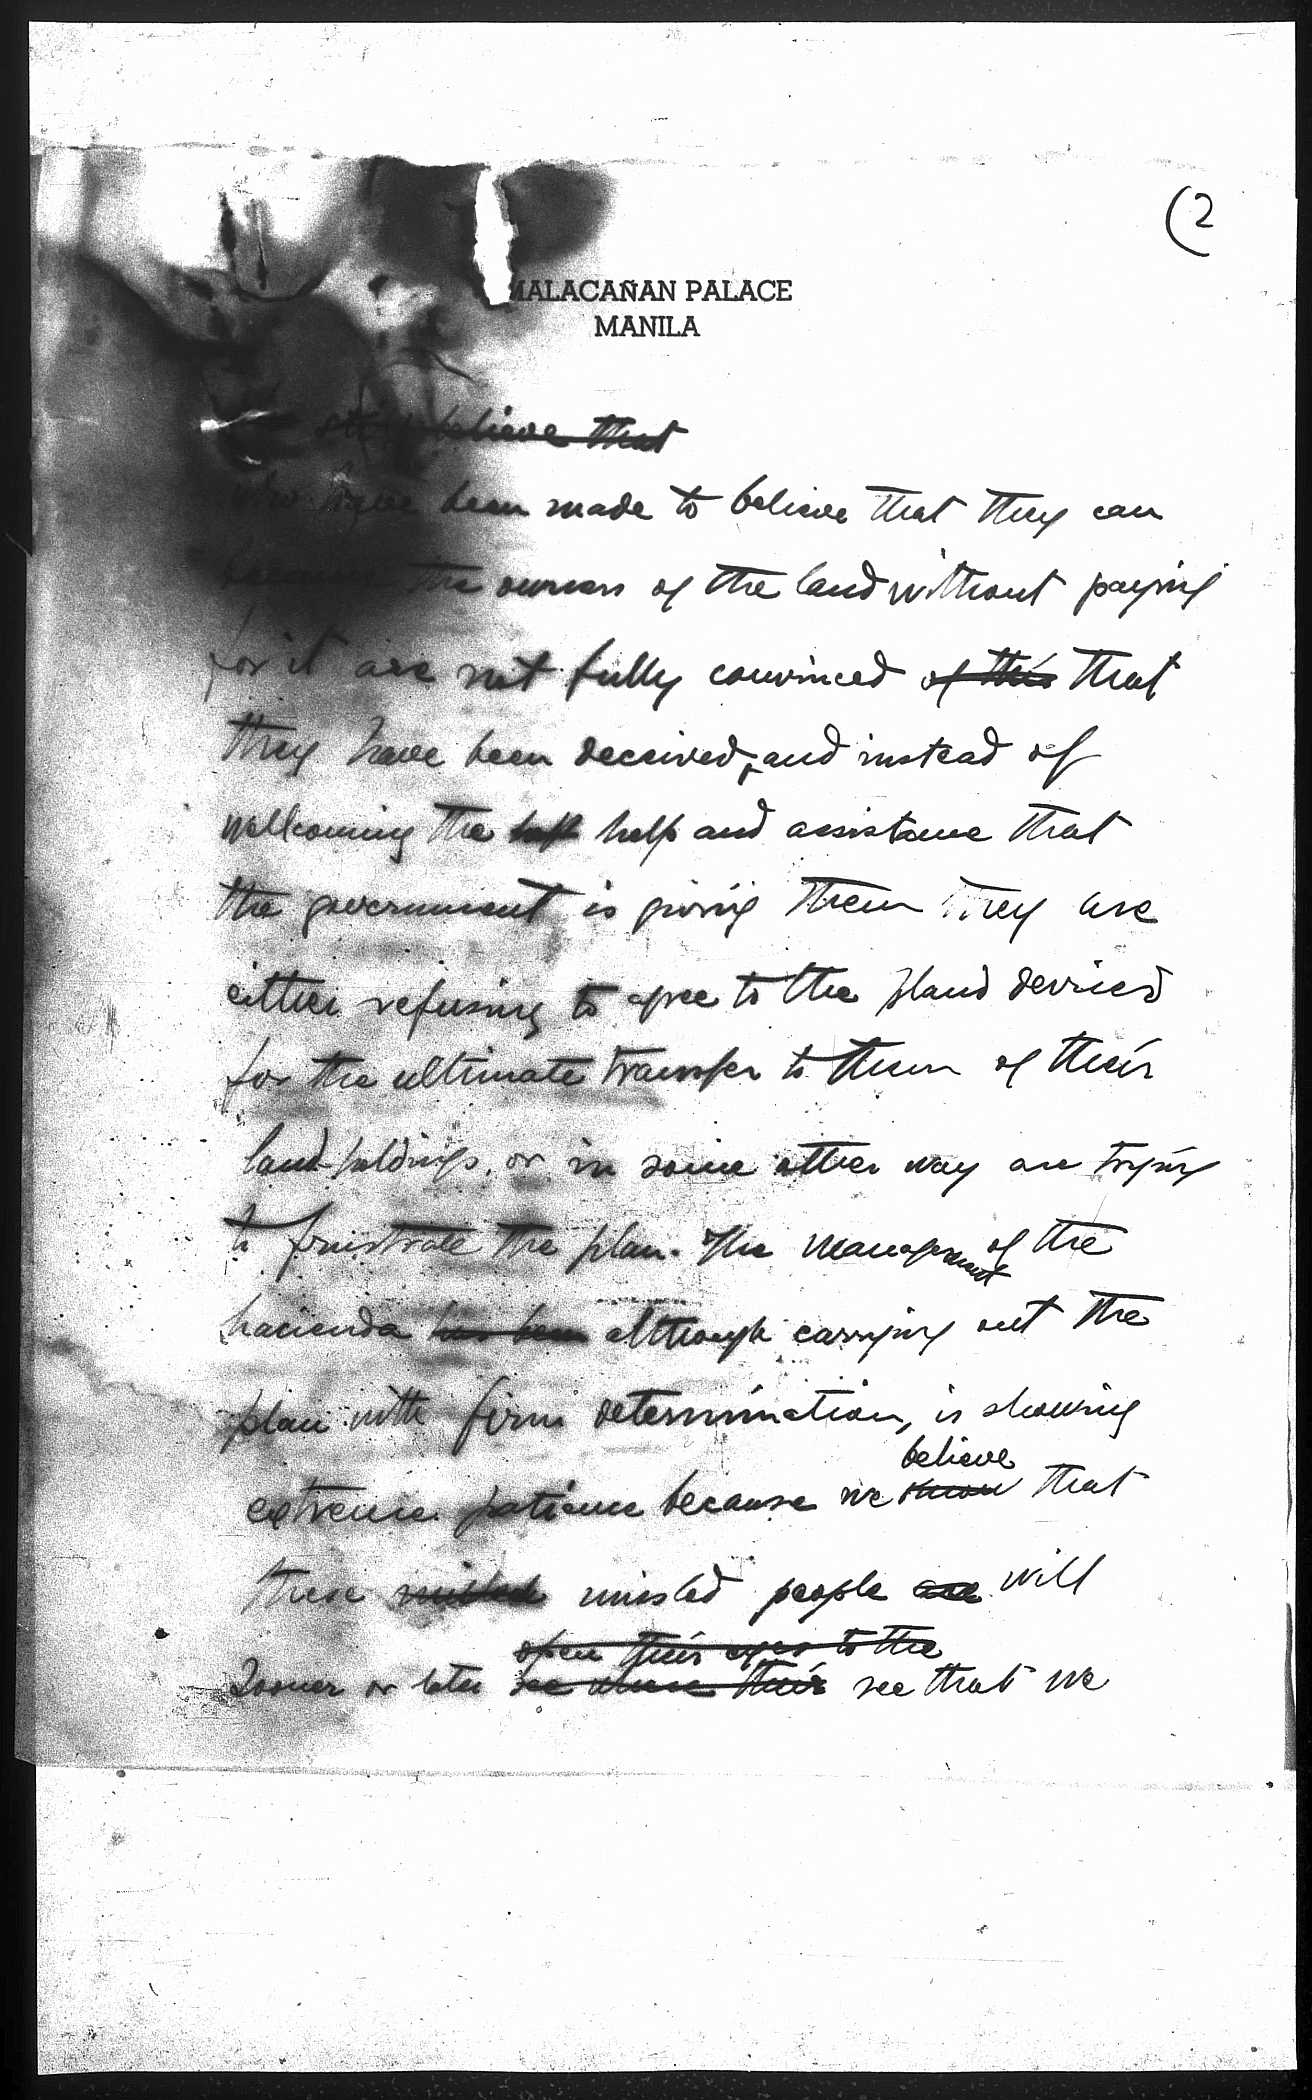 (2
MALACAÑAN PALACE
MANILA
believe that
who have been made to believe that they can
become the owners of the land without paying
for it are not fully convinced of this that
they have been deceived, and instead of
wellcoming the help and assistance that
the government is giving them they are
either refusing to agree to the pland deviced
for the ultimate transfer to them of their
land-holdings, or in some other way are trying
to frustrate the plan. The management of the
hacienda has been although carrying out the
plan with firm determination, is showing
believe
extreme patience because we know that
these misled people are will
open their eyes to the
Sooner or later see their see that we